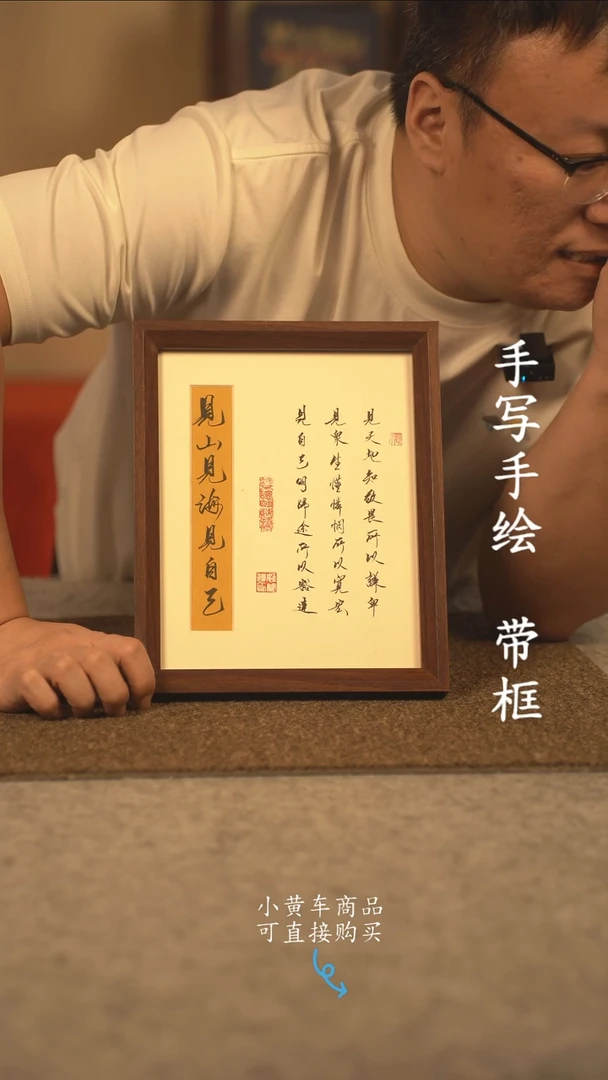 見天地知敬畏所以謙卑
見衆生懂憐憫所以寬容
見自己明歸途所以豁達
見山見海見自己
手写手绘 带框
小黄车商品
可直接购买